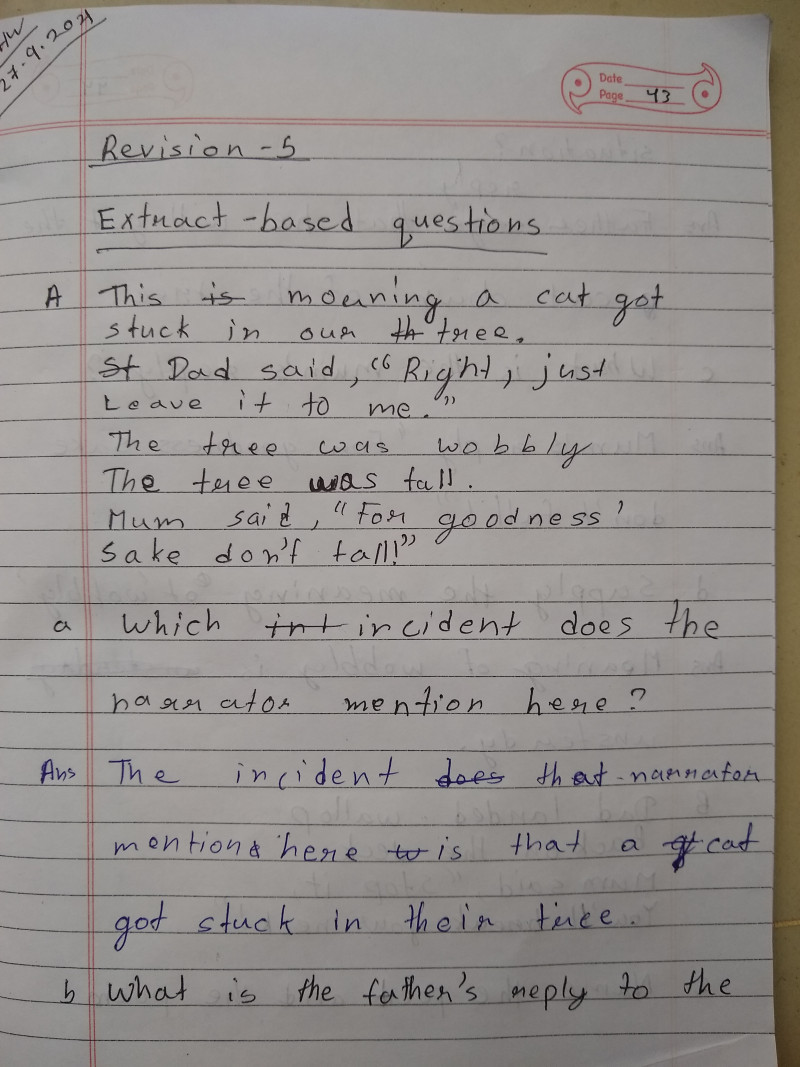 HW
27.9.2021
Date
Page 43
Revision -5
Extract -based questions
A This is morning a cat got
stuck in our th tree.
St Dad said, "Right, just
Leave it to me."
The tree was wobbly
The tree was tall.
Mum said, "For goodness'
Sake don't fall!"
a Which int incident does the
narrator mention here?
Ans The incident does that narrator
mentions here to is that a cat
got stuck in their tree.
b What is the father's reply to the